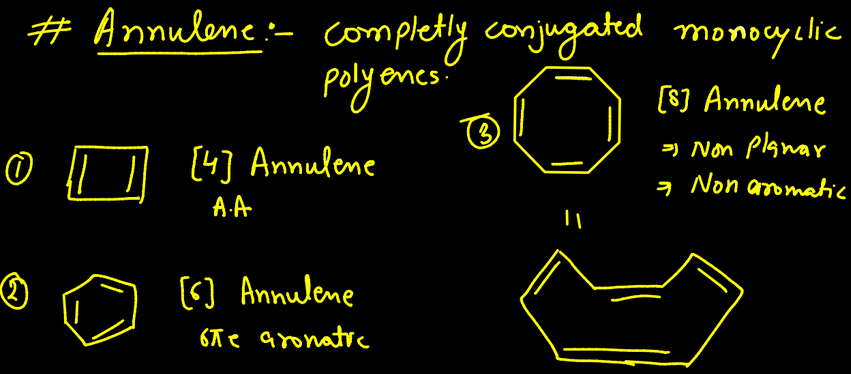 # Annulene :- completly conjugated monocyclic
polyenes.
① [4] Annulene
A.A
② [6] Annulene
6π e aromatic
③ [8] Annulene
⇒ Non Planar
⇒ Non aromatic